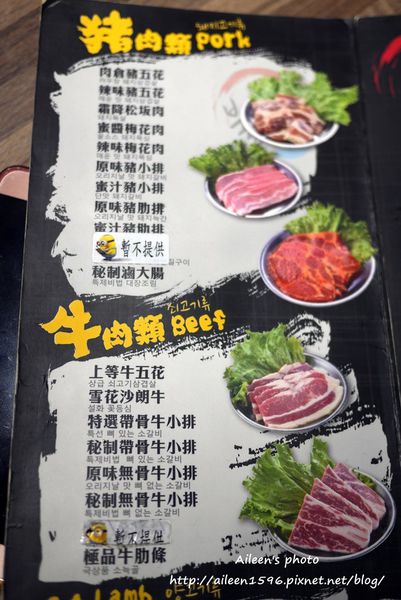 猪肉類 Pork 돼지고기류
肉倉豬五花
辣味豬五花
매운 맛 돼지삼겹살
霜降松坂肉
돼지목살
蜜醬梅花肉
辣味梅花肉
매운 맛 돼지목심
原味豬小排
오리지날 맛 돼지갈비
蜜汁豬小排
단맛 돼지갈비
原味豬肋排
오리지날 맛 돼지늑간
蜜汁豬肋排
暫不提供
秘制滷大腸
특제비법 대장조림
牛肉類 Beef 쇠고기류
上等牛五花
상급 쇠고기삼겹살
雪花沙朗牛
설화 꽃등심
特選帶骨牛小排
특선 뼈 있는 소갈비
秘制帶骨牛小排
특제비법 뼈 있는 소갈비
原味無骨牛小排
오리지날 맛 뼈 없는 소갈비
秘制無骨牛小排
특제비법 뼈 없는 소갈비
暫不提供
極品牛肋條
극상품 소늑골
Lamb 양고기류
Aileen's photo
http://aileen1596.pixnet.net/blog/